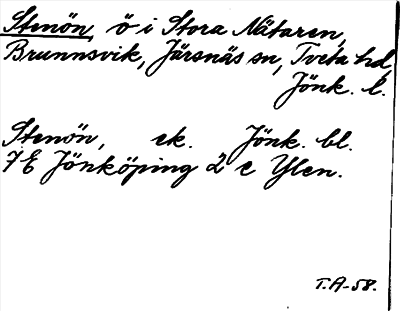 Stenön, ö i Stora Nätaren,
Brunnsvik, Järsnäs sn, Tveta hd,
Jönk. l.
Stenön, ek. Jönk. bl.
7 E Jönköping 2 e Ylen.
T.A-58.